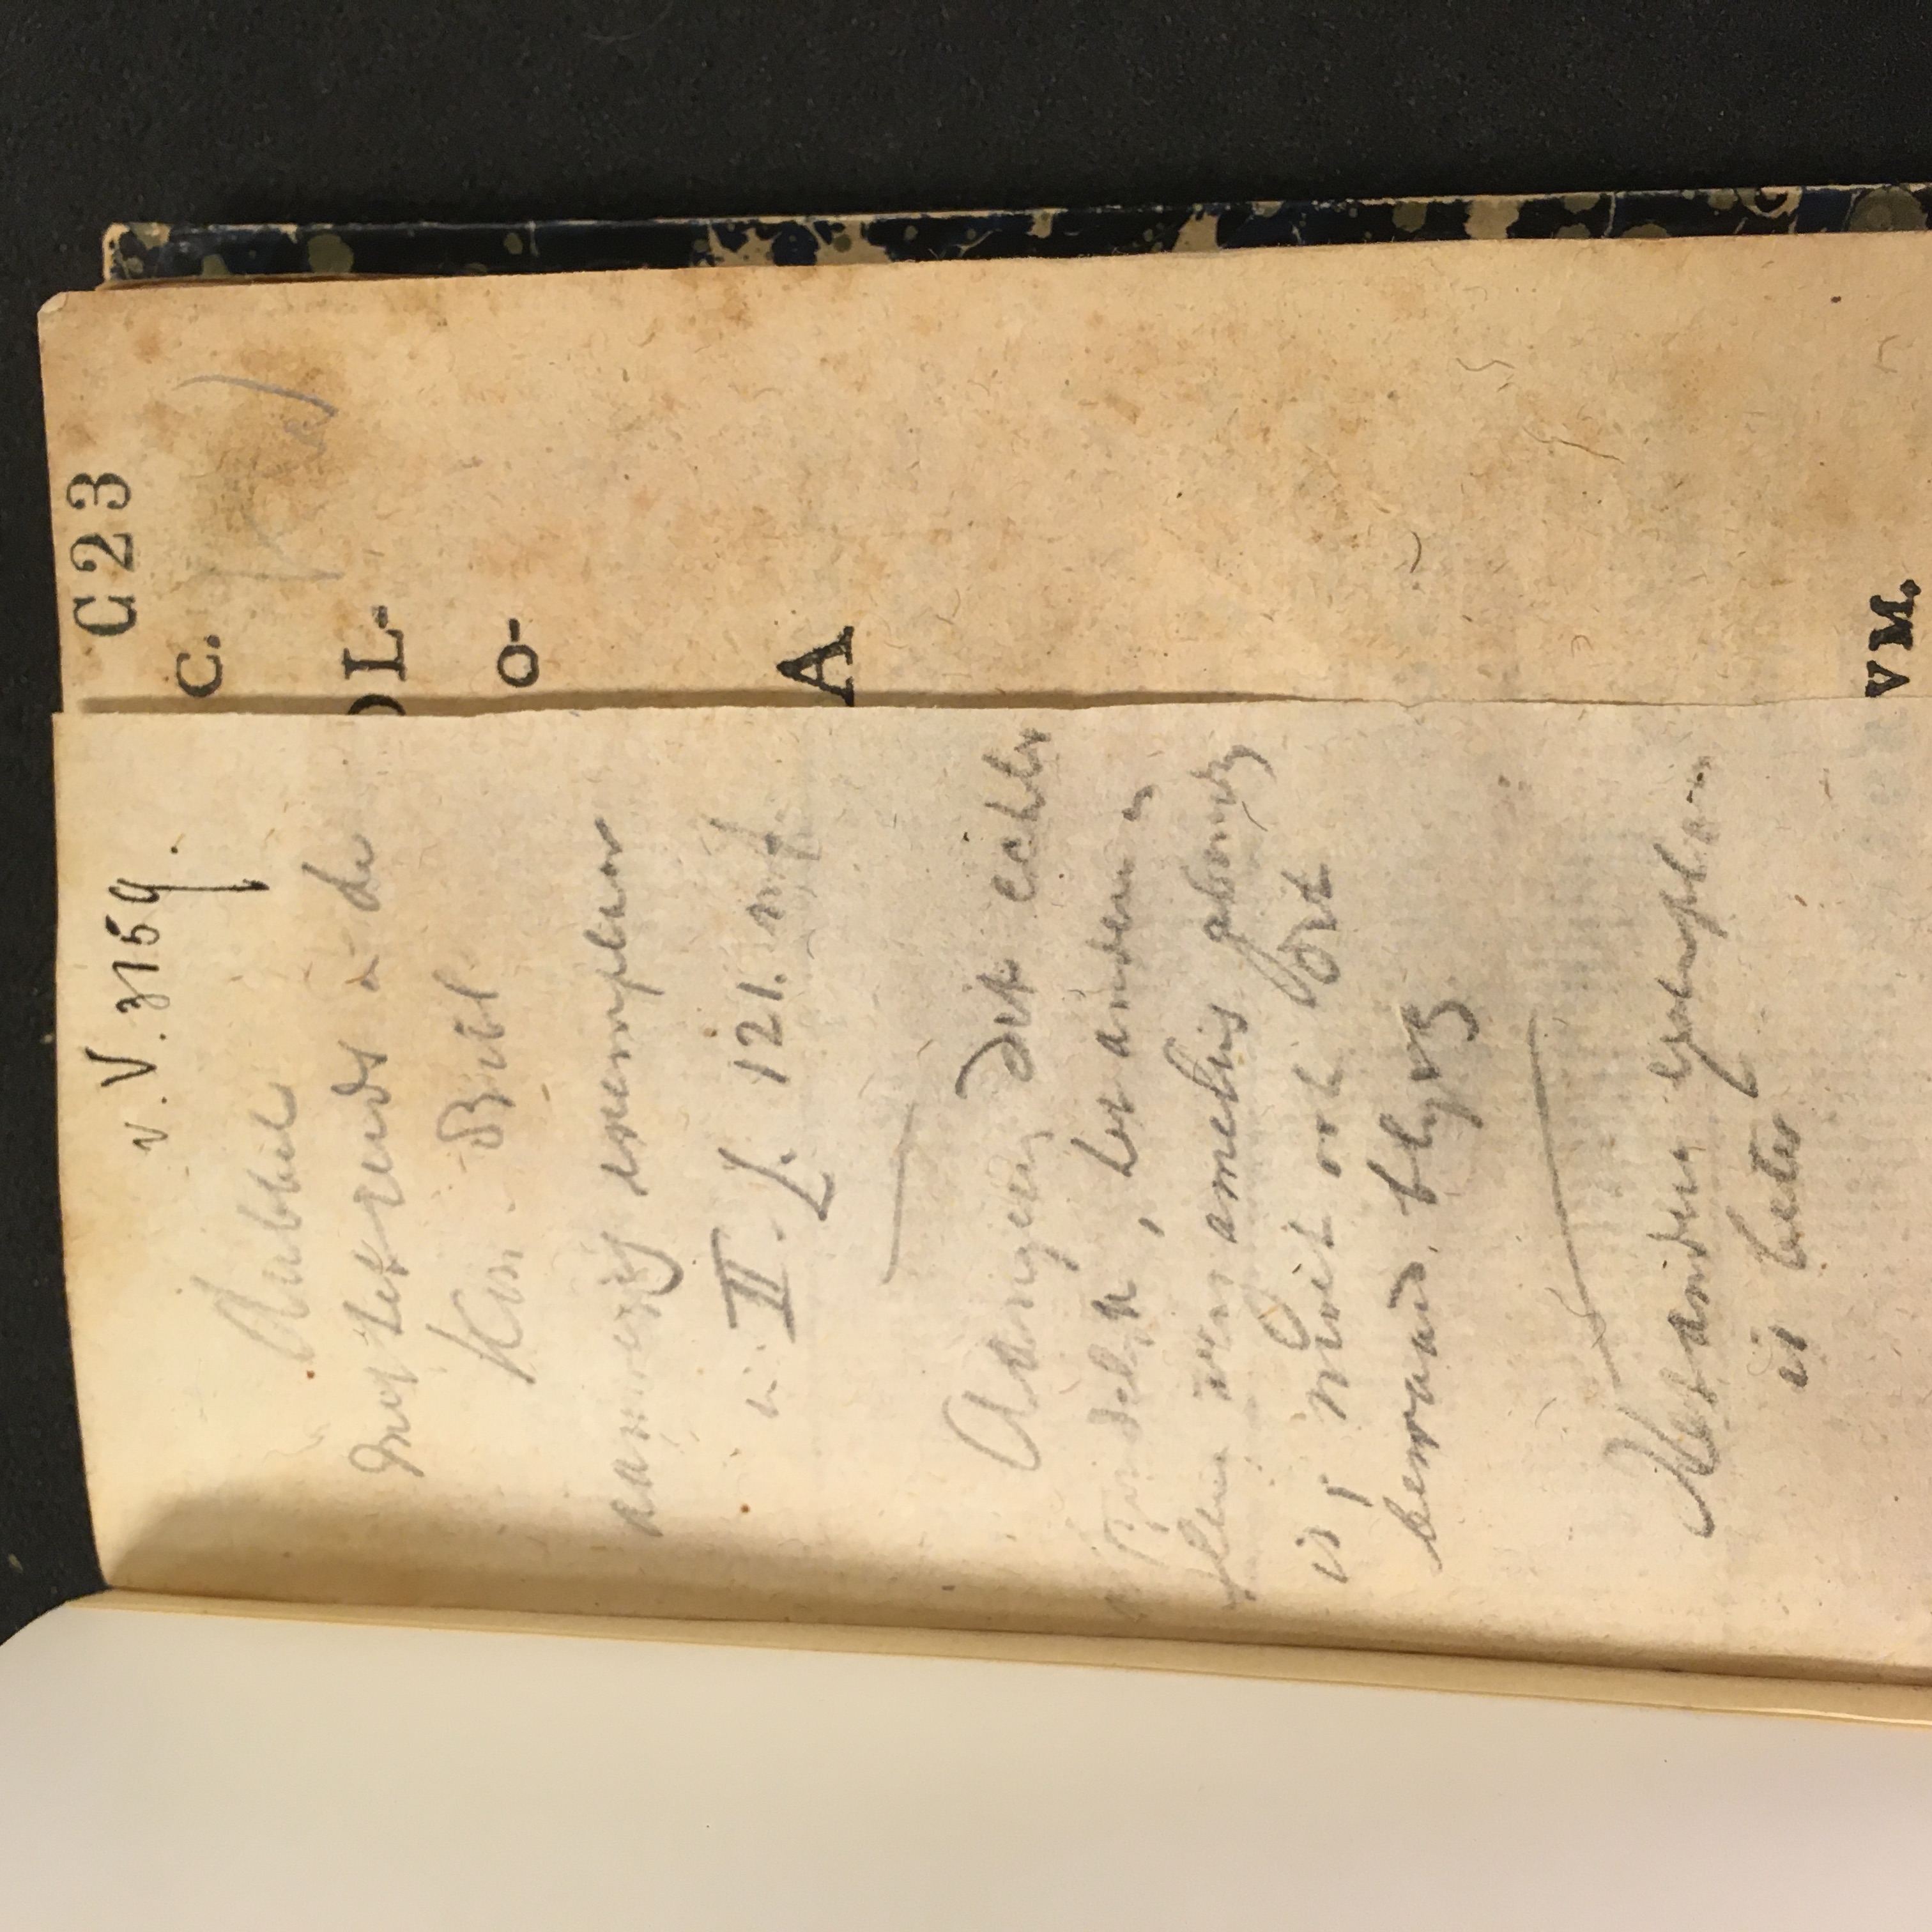 v. V. 3159.
dubbel
met het reeds in de
Kon. Bibl
aanwezig exemplaar
in II. L. 121. n f.
Aangezien dit echter
afzonderlijk, het andere in
verzamelius gebonden
is, moet ook dit
bewaard. blijven
Het andere exemplaar
is beter
C23
C.
OL-
O-
A
VM.